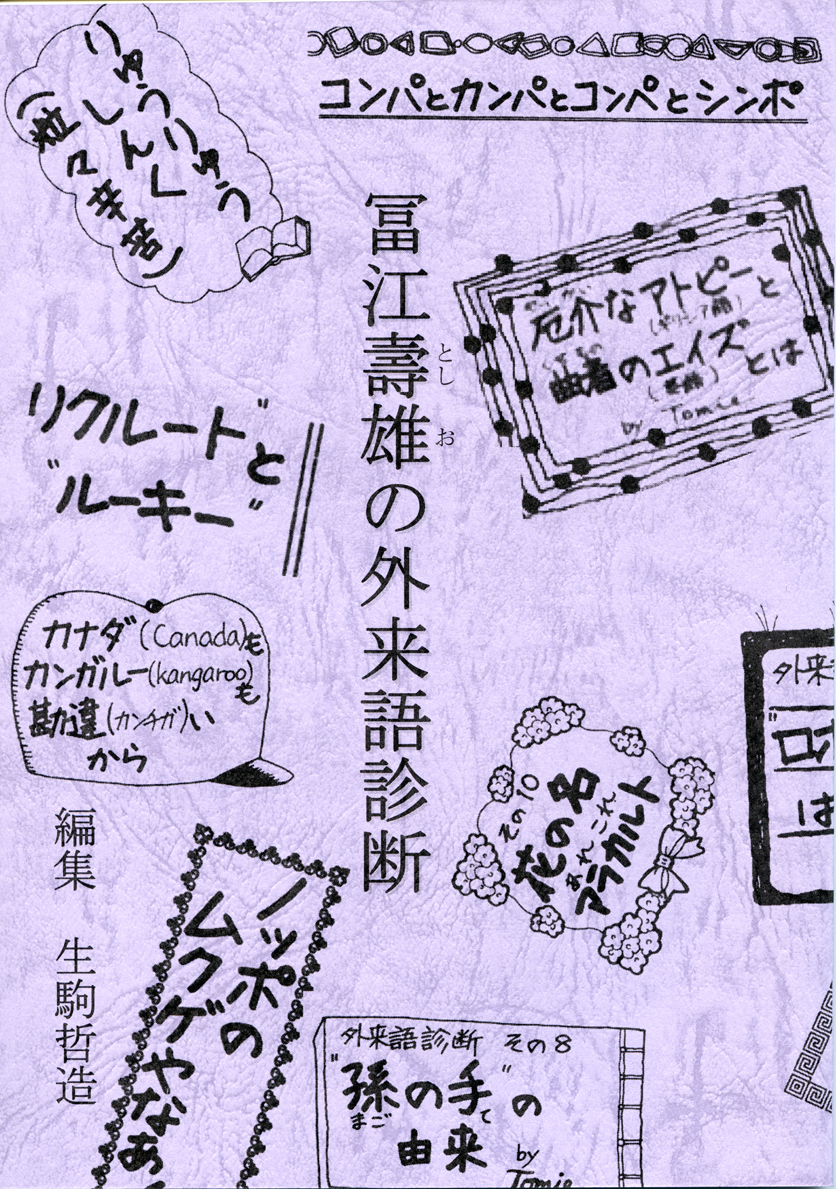 コンパとカンパとコンペとシンポ
りゅうりゅう
しんく
(粒々辛苦)
冨江壽雄の外来語診断
とし お
やっかい
厄介なアトピーと
(ギリシア語)
くせもの
曲者のエイズとは
(英語)
by Tomie
"リクルート"と
"ルーキー"
カナダ(Canada)も
カンガルー(kangaroo)も
勘違(カンチガ)い
から
外来
"ロイ
は
花の名
その10
あれこれ
アラカルト
編集 生駒哲造
ノッポの
ムクゲやなあ
外来語診断 その8
"孫の手"の
まご て
由来
by
Tomie